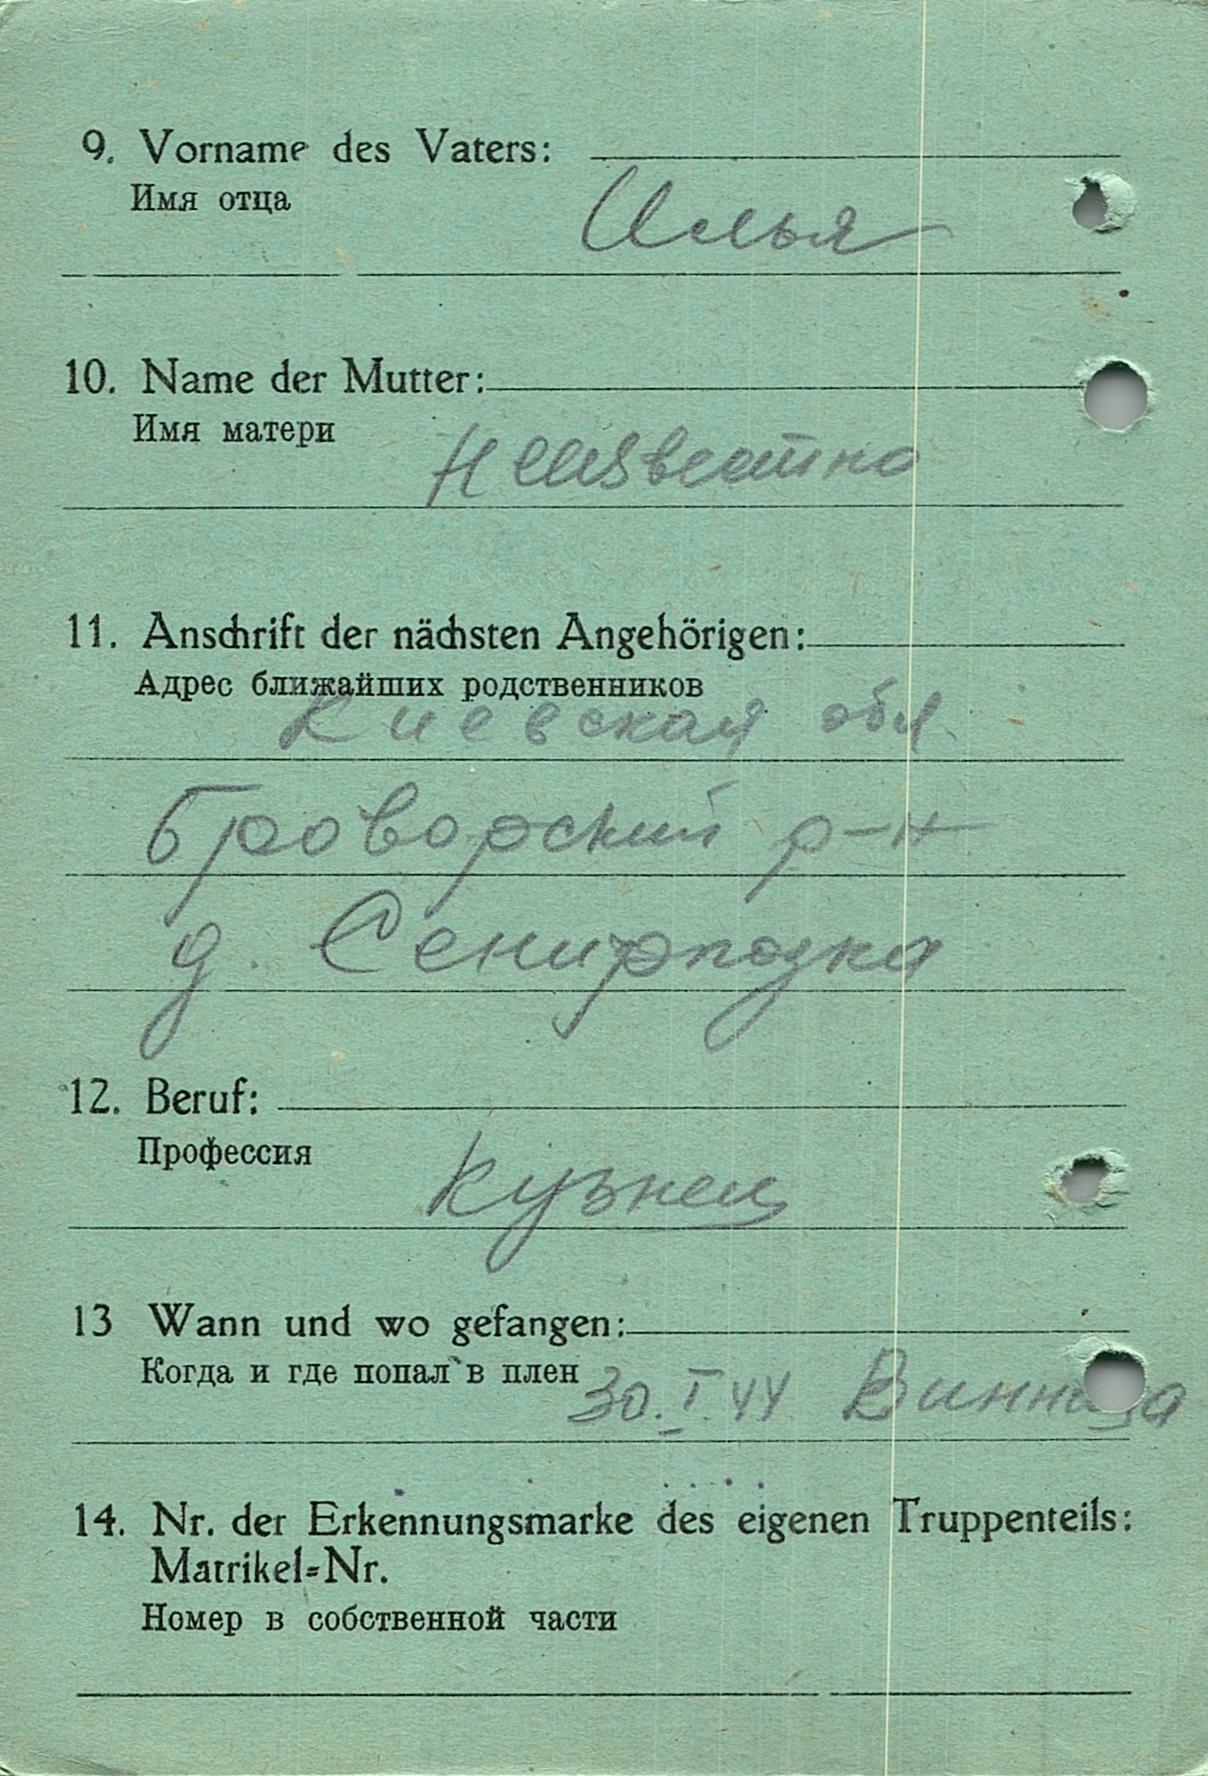 9. Vorname des Vaters:
Имя отца
Илья
10. Name der Mutter:
Имя матери
Неизвестно
11. Anschrift der nächsten Angehörigen:
Адрес ближайших родственников
Киевская обл.
Броворский р-н
д.
12. Beruf:
Профессия
Кузнец
13 Wann und wo gefangen:
Когда и где попал в плен
30.I.44 Винница
14. Nr. der Erkennungsmarke des eigenen Truppenteils:
Matrikel=Nr.
Номер в собственной части